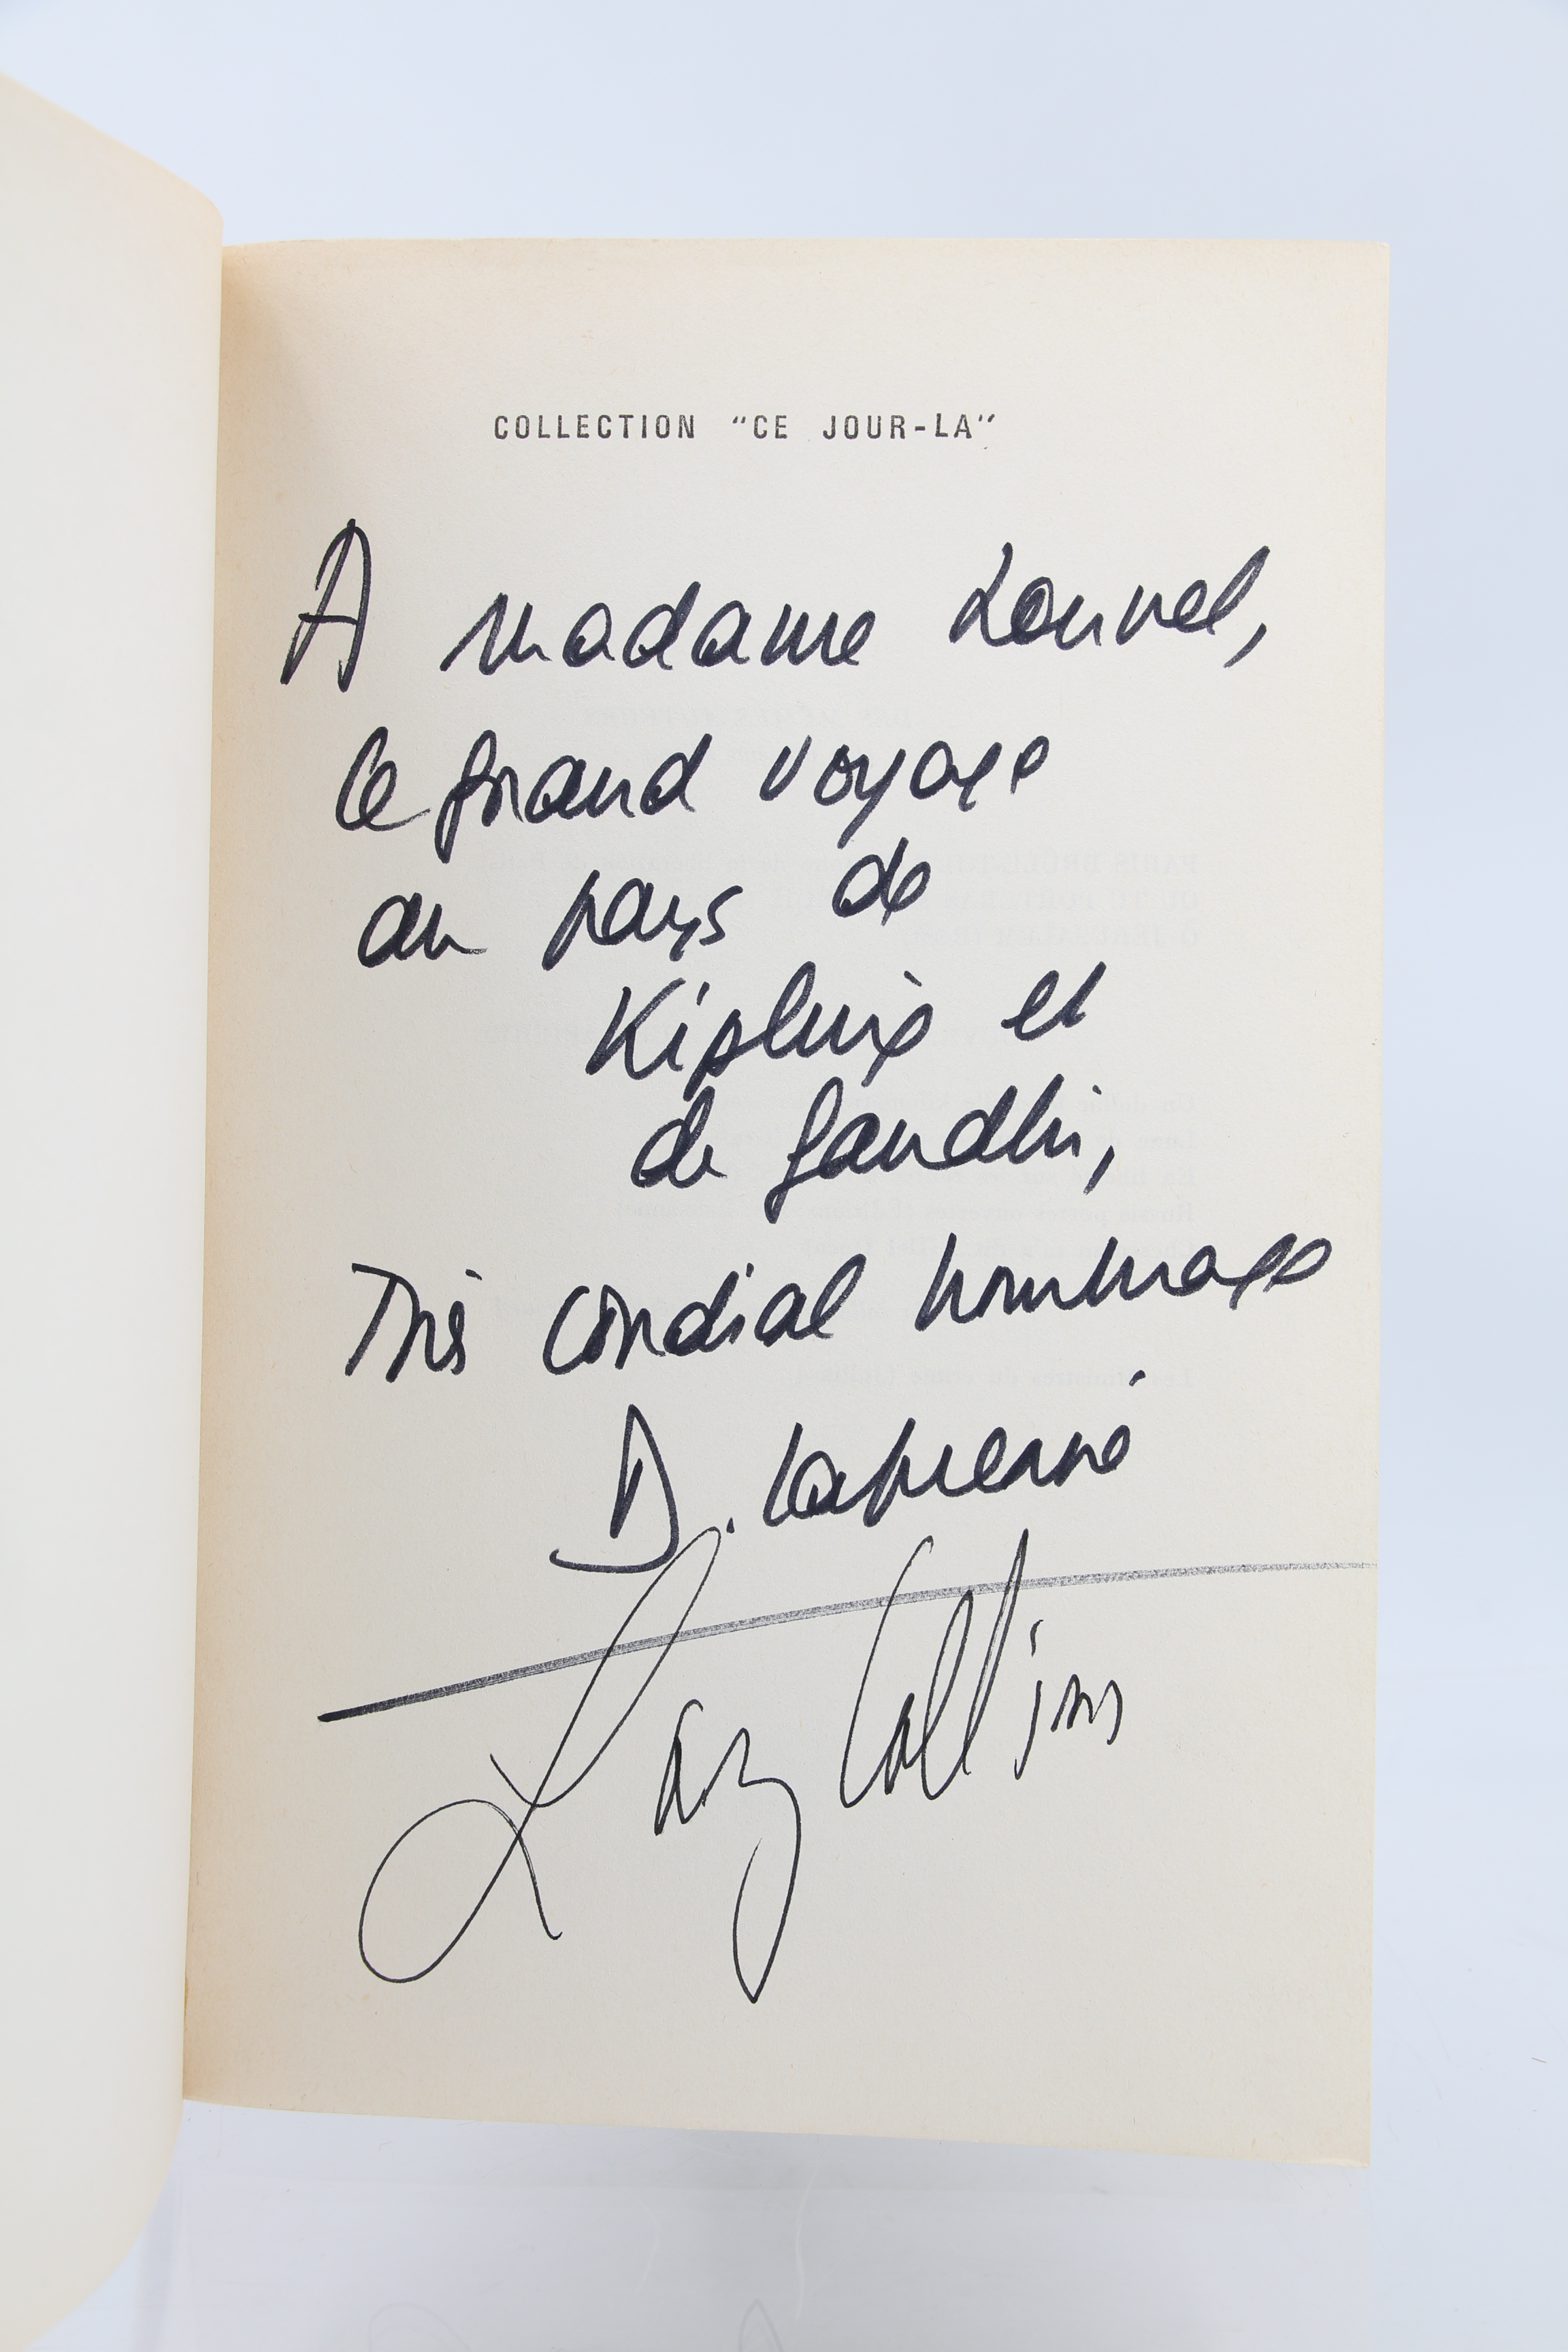 COLLECTION "CE JOUR-LA"
A madame Louvel,
le grand voyage
au pays de
Kipling et
de Gandhi,
Très cordial hommage
D. Lapierre
Larry Collins